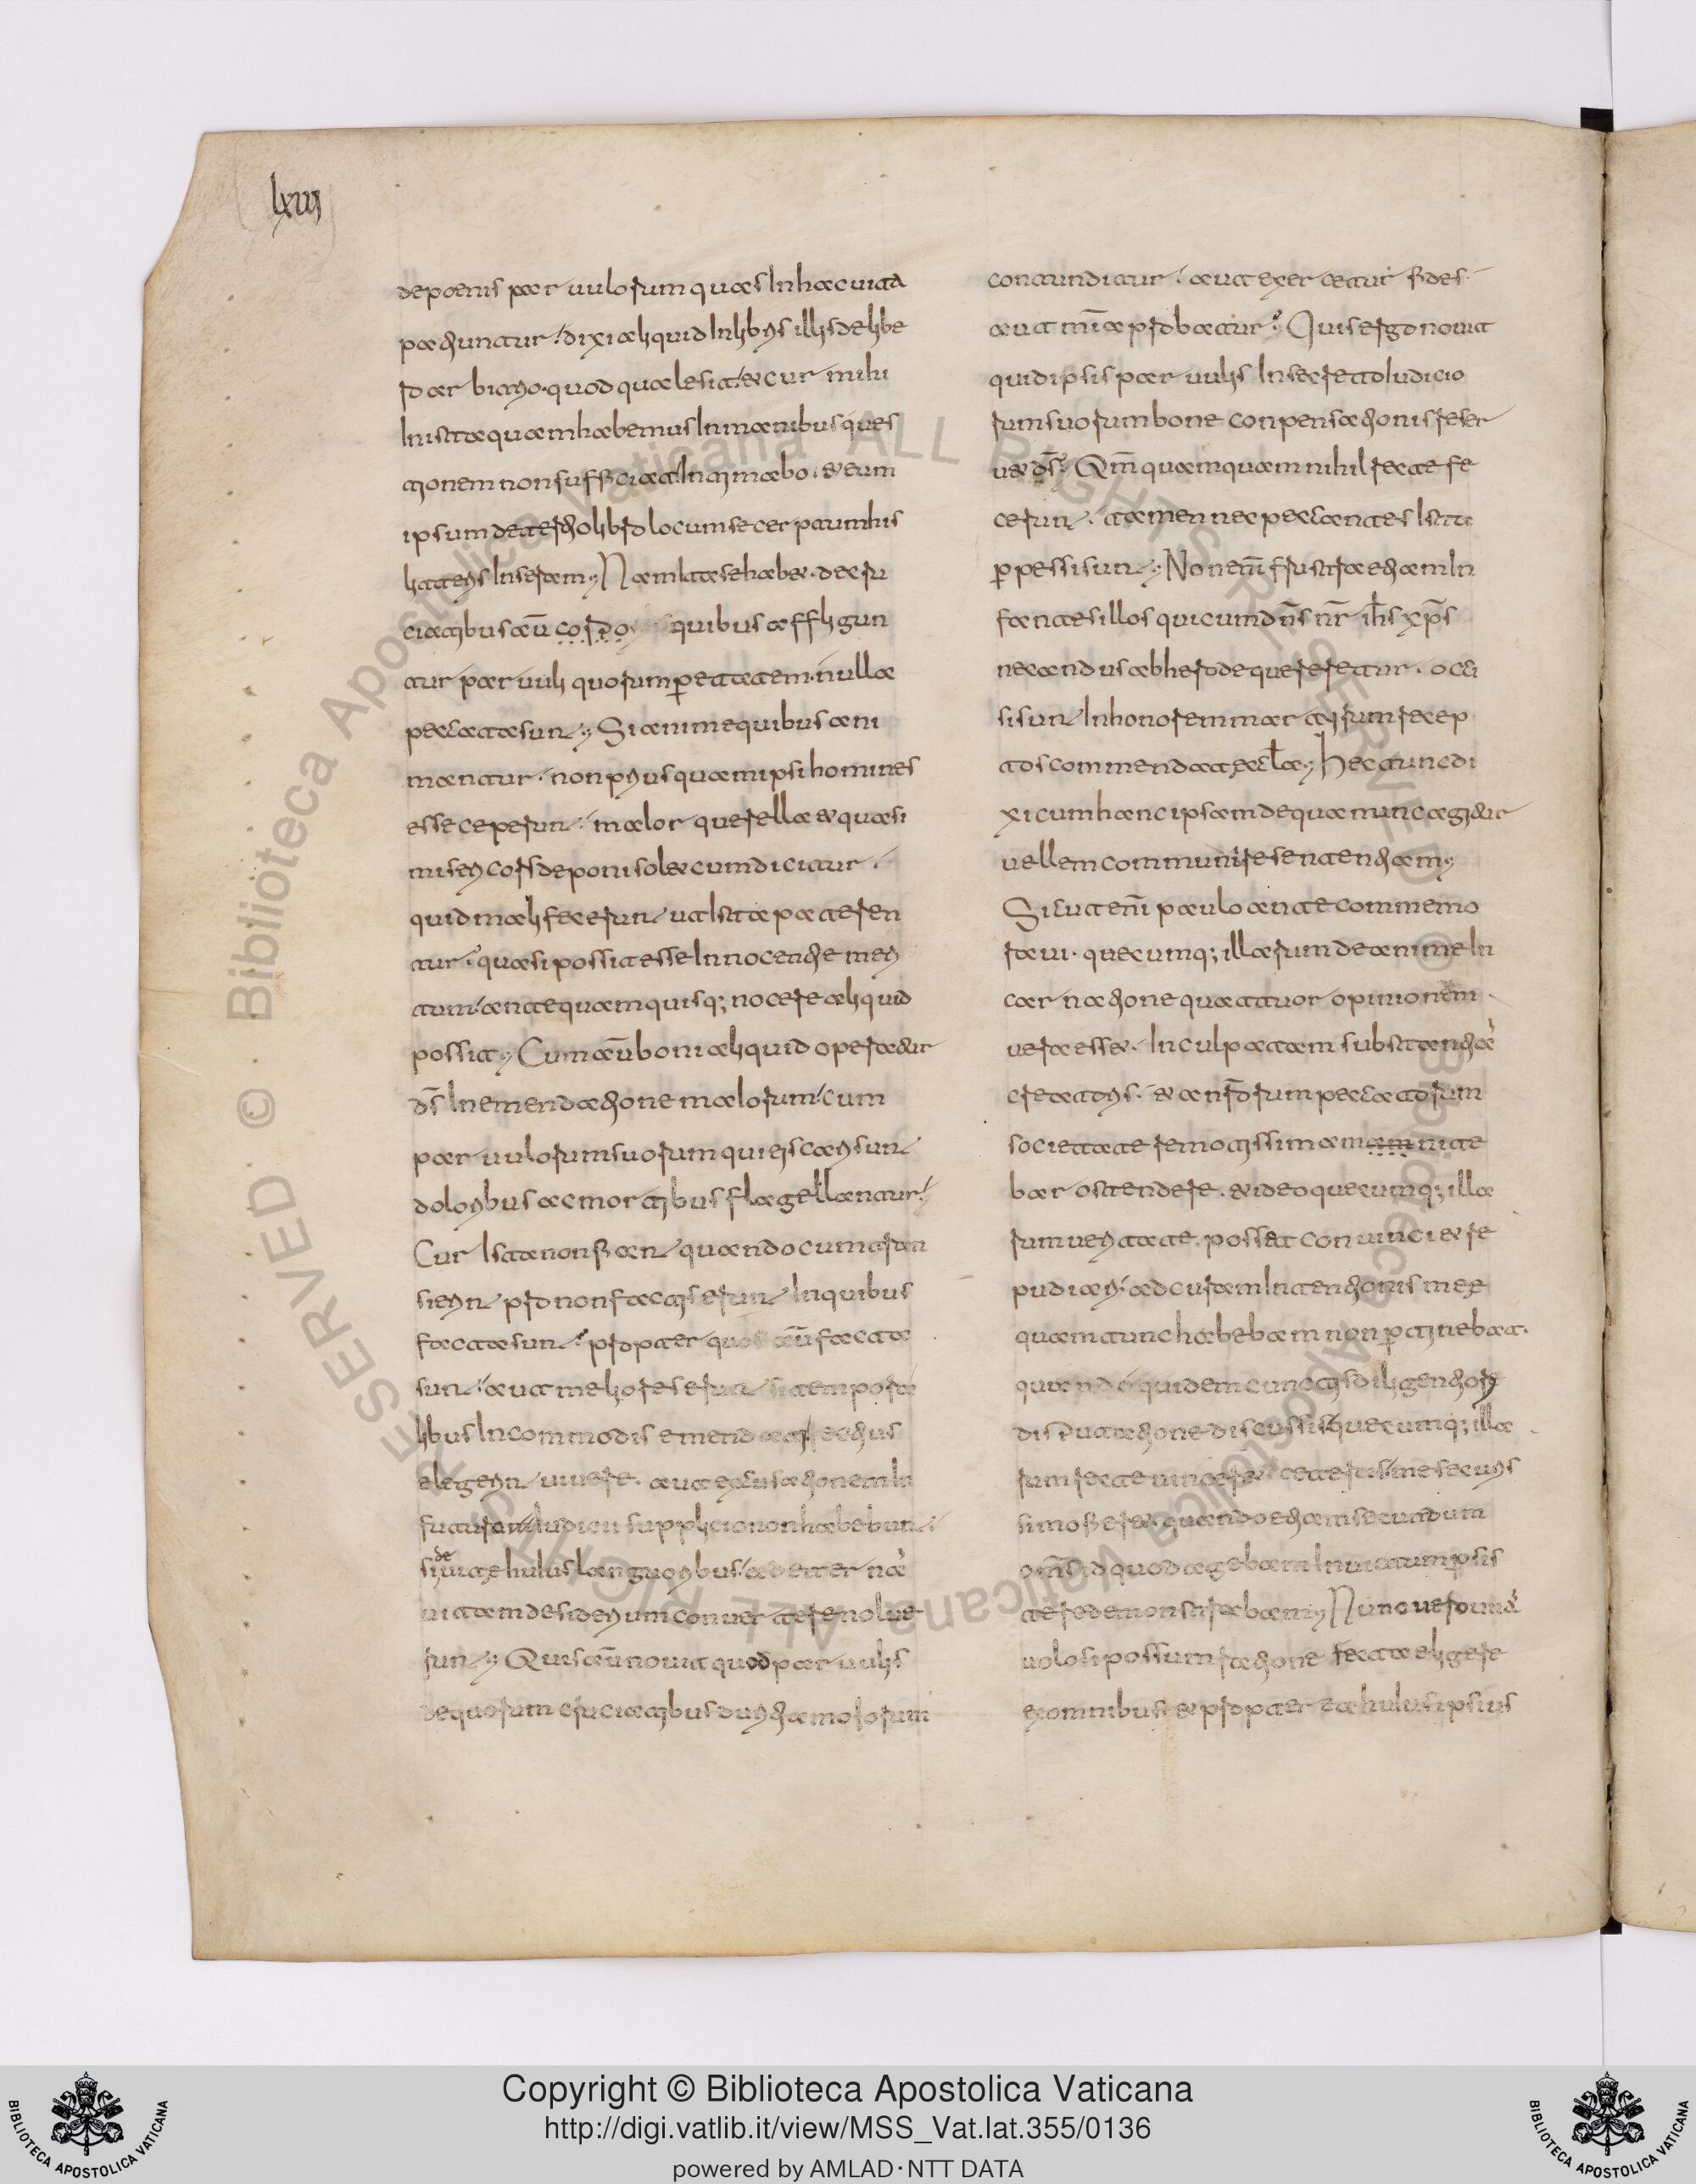 lxiii
depoenis paruulorum quas Inhacuita
patiuntur. dixialiquid Inlibris illis delibe
ro arbitrio. quod qualesit. & cur mihi
Inista quam habemus Inmanibus ques
tionem non sufficiat Intimabo. & eum
ipsum detertio libro locum sec erptum his
litteris Inseram; Nam Ita se hab&. decru
ciatibus aū quibus affligun
tur paruuli quorum p etatem. nulla
peccata sun; Si anime quibus ani
mantur. non prius quam ipsi homines
esse ceperun. maior querella & quasi
misericors deponi sol& cum dicitur.
quid mali fecerun ut Ista pateren
tur. quasi possit esse Innocentie meri
tum. antequam quisq; nocere aliquid
possit; Cum aū boni aliquid operatur
ds̄ In emendatione malorum. cum
paruulorum suorum qui eis cari sun
doloribus ac mortibus flagellantur.
Cur Ista non fian quando cum tran
sierin pro non factis erun Inquibus
facta sun. propter quos aū facta
sun. aut meliores erun si tempora
libus Incommodis emendati rectius
elegerin uiuere. aut excusationem In
futuram Iudicii supplicio non habebun.
si de uite huius languoribus. ad eternā
uitam desiderium conuertere nolue
run; Quis aū nouit quod paruulis
dequorum cruciatibus duritia maiorum
contunditur. aut exercetur fides.
aut mīa probatur. Quis ergo nouit
quid ipsis paruulis In secreto Iudicio
rum suorum bone conpensationis reser
u& ds̄. Qm̄ quamquam nihil recte fe
cerun. tamen nec peccantes Ista
p pessi sun; Non enī frustra etiam In
fantes illos qui cum dn̄s nr̄ ih̄s xp̄s
necandus ab herode quereretur. occi
si sun In honorem martirum recep
tos commendat eccl̄a; Hec tunc di
xi cum hanc ipsam dequa nunc agitur
uellem communire sententiam;
Sicut enī paulo ante commemo
raui. quecumq; illarum de anime In
carnatione quattuor opinionem
uera ess&. Inculpatam substantiā
creatoris. & a nr̄orum peccatorum
societate remotissimam nite
bar ostendere. & ideo quecumq; illa
rum ueritate. posset conuinci & re
pudiari. ad curam Intentionis mee
quam tunc habebam non p tinebat.
quando quidem cunctis diligentior
disputatione discussis quecumq; illa
rum recte uinceret ceteras. me securis
simo fier&. quando etiam secundum
om̄s id quod agebam Inuictum p sis
tere demonstrabam; Nunc uero unā
uolo si possum ratione recta eligere
ex omnibus. & propterea huius ipsius
Copyright © Biblioteca Apostolica Vaticana
http://digi.vatlib.it/view/MSS_Vat.lat.355/0136
powered by AMLAD·NTT DATA
BIBLIOTECA APOSTOLICA VATICANA
BIBLIOTECA APOSTOLICA VATICANA